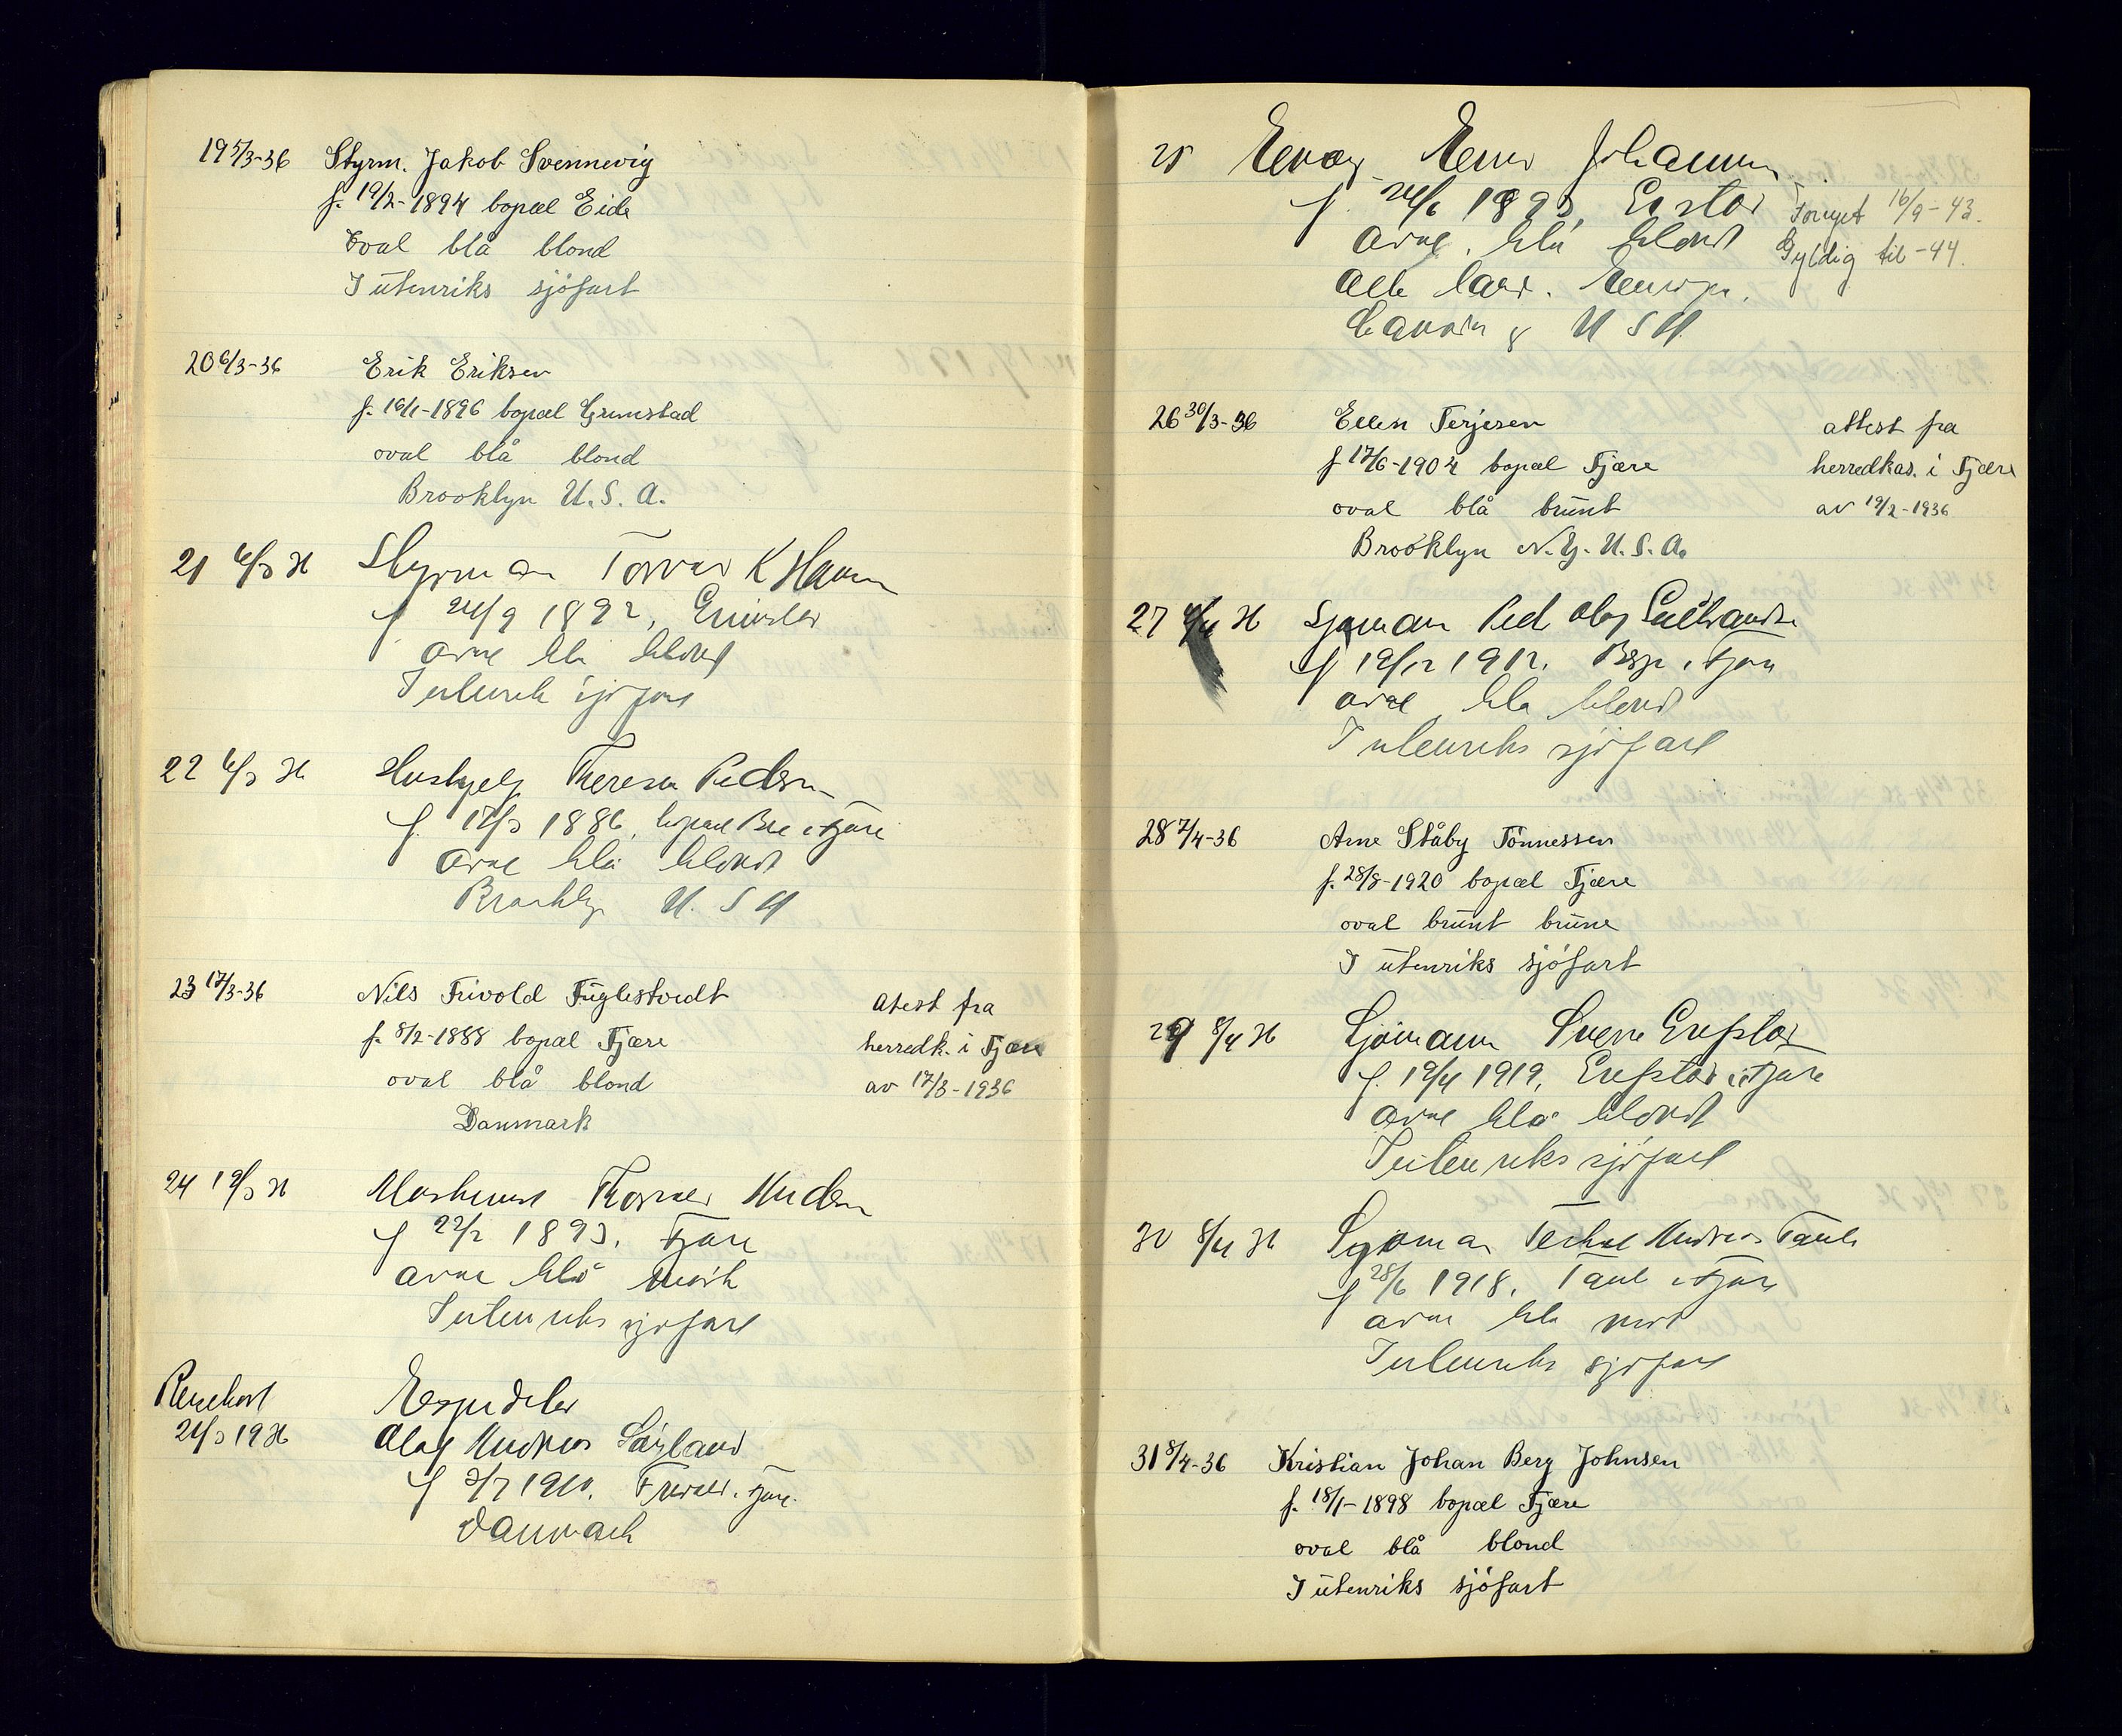 19 5/3-36 Styrm. Jakob Svennevig
f. 19/2-1894 bopæl Eide
Oval blå blond
I utenriks sjöfart
20 6/3-36 Erik Eriksen
f. 16/1-1896 bopæl Grimstad
oval blå blond
Brooklyn U.S.A.
21 6/3 36 Styrman K Hansen
f 24/9 1892,
oval blå blond
I utenriks sjöfart
22 6/3 36 Hushjelp Theresa Pedersen
f. 17/3 1886, bopæl i Fjære
oval blå blond
Brooklyn U.S.A
23 17/3-36 Nils Frivold Fuglestvedt
f. 8/2-1888 bopæl Fjære
oval blå blond
Danmark
Atest fra
herredk. i Fjære
av 17/3-1936
24 19/3 36 Maskinist Andersen
f 22/2 1893. Fjære
oval blå mörk
I utenriks sjöfart
Reisekort
24/3 1936
Olaf Andreas
f 3/7 1910. Frivold. Fjære.
Danmark
25 Johannesen
f. 24/6 1893,
oval, blå blond
alle land. Europa.
Canada & U S A.
Fornyet 16/9-43.
Gyldig til -44.
26 30/3-36 Ellen Terjesen
f 17/6-1904 bopæl Fjære
oval blå brunt
Brooklyn N.Y. U.S.A.
attest fra
herredkas. i Fjære
av 19/2-1936
27 36 Sjömann Olaf
f 19/12 1912. Bop. i Fjære
oval blå blond
I utenriks sjöfart
28 7/4-36 Arne Ståby Tönnessen
f. 28/8-1920 bopæl Fjære
oval brunt brune
I utenriks sjöfart
29 8/4 36 Sjömann Sverre Grefstad
f. 19/4 1919, Grefstad i Fjære
oval blå blond
I utenriks sjöfart
30 8/4 36 Sjömann Terkel Andreas
f 28/6 1918. i Fjære
oval blå
I utenriks sjöfart
31 8/4-36 Kristian Johan Berg Johnsen
f. 18/1-1898 bopæl Fjære
oval blå blond
I utenriks sjöfart